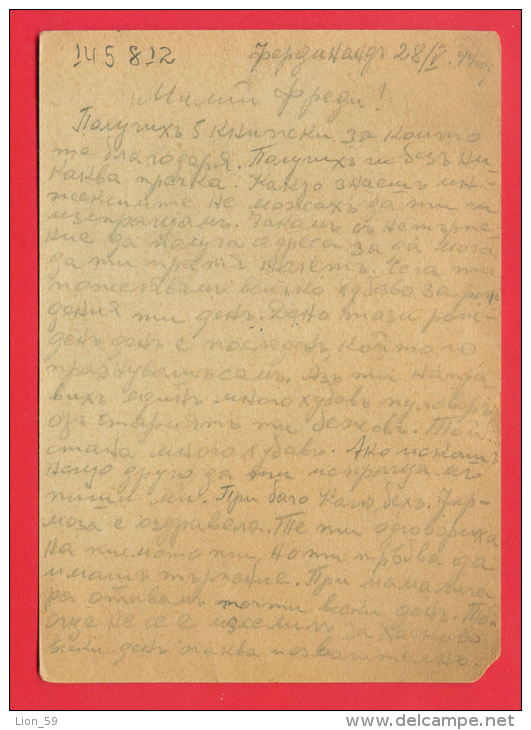 145812 Фердинандъ 28/V. 44 год
Милий Фреди!
Получихъ 5 книжки за които
те благодаря. Получихъ ги безъ ни-
каква пречка. Какго знаешъ ин-
жексиите не можахъ да ти ги
изпращамъ. Чакамъ съ нетърпе-
ние да получа адреса за да мога
да ти пратя пакетъ. Сега ти
пожелавамъ всичко хубаво за рож-
дения ти день. Дано този рож-
день день е последенъ който го
празнувашъ самъ. Азъ ти напра-
вихъ единъ много хубавъ пуловеръ
отъ стариятъ ти бежовъ. Той
стана много хубавъ. Ако искашъ
нещо друго да ти изпращамъ
пиши ми. При баго Кольо бехъ.
е оздравела. Те ти отговориха
на писмото ти, но ти трябва да
имашъ търпение. При мама
отивамъ почти всеки день.
още не се е изселилъ за Хасково
всеки день чаква позволително.
Lion_59